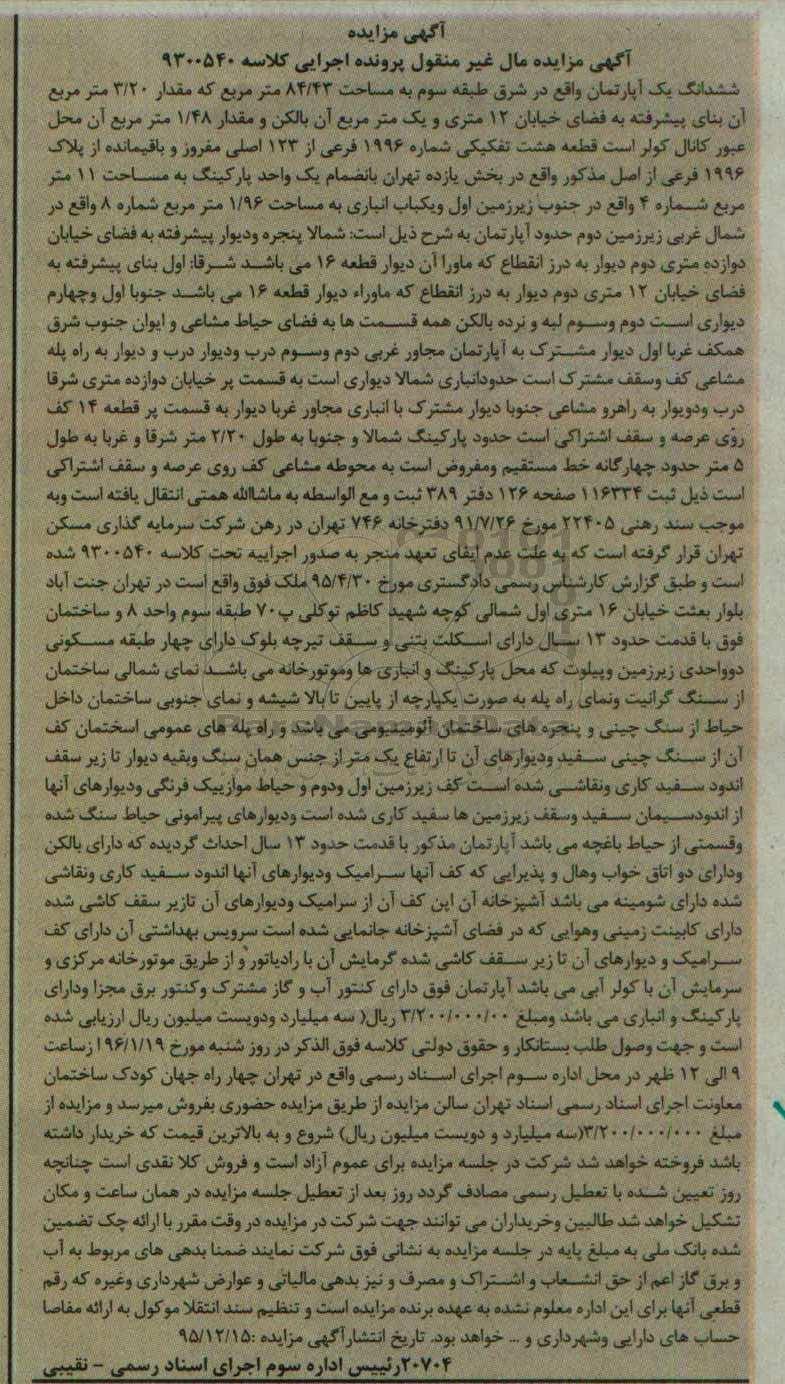 آگهی مزایده
آگهی مزایده مال غیر منقول پرونده اجرایی کلاسه ۹۳۰۰۵۴۰
ششدانگ یک آپارتمان واقع در شرق طبقه سوم به مساحت ۸۴/۴۳ متر مربع که مقدار ۳/۲۰ متر مربع
آن بنای پیشرفته به فضای خیابان ۱۲ متری و یک متر مربع آن بالکن و مقدار ۱/۴۸ متر مربع آن محل
عبور کانال کولر است قطعه هشت تفکیکی شماره ۱۹۹۶ فرعی از ۱۲۳ اصلی مفروز و باقیمانده از پلاک
۱۹۹۶ فرعی از اصل مذکور واقع در بخش یازده تهران بانضمام یک واحد پارکینگ به مساحت ۱۱ متر
مربع شماره ۴ واقع در جنوب زیرزمین اول ویکباب انباری به مساحت ۱/۹۶ متر مربع شماره ۸ واقع در
شمال غربی زیرزمین دوم حدود آپارتمان به شرح ذیل است: شمالا پنجره ودیوار پیشرفته به فضای خیابان
دوازده متری دوم دیوار به درز انقطاع که ماورا آن دیوار قطعه ۱۶ می باشد شرقا: اول بنای پیشرفته به
فضای خیابان ۱۲ متری دوم دیوار به درز انقطاع که ماوراء دیوار قطعه ۱۶ می باشد جنوبا اول وچهارم
دیواری است دوم وسوم لبه و نرده بالکن همه قسمت ها به فضای حیاط مشاعی و ایوان جنوب شرق
همکف غربا اول دیوار مشترک به آپارتمان مجاور غربی دوم وسوم درب ودیوار درب و دیوار به راه پله
مشاعی کف وسقف مشترک است حدودانباری شمالا دیواری است به قسمت پر خیابان دوازده متری شرقا
درب ودویوار به راهرو مشاعی جنوبا دیوار مشترک با انباری مجاور غربا دیوار به قسمت پر قطعه ۱۴ کف
روی عرصه و سقف اشتراکی است حدود پارکینگ شمالا و جنوبا به طول ۲/۲۰ متر شرقا و غربا به طول
۵ متر حدود چهارگانه خط مستقیم ومفروض است به محوطه مشاعی کف روی عرصه و سقف اشتراکی
است ذیل ثبت ۱۱۶۳۳۴ صفحه ۱۲۶ دفتر ۳۸۹ ثبت و مع الواسطه به ماشاالله همتی انتقال یافته است وبه
موجب سند رهنی ۲۲۴۰۵ مورخ ۹۱/۷/۲۶ دفترخانه ۷۴۶ تهران در رهن شرکت سرمایه گذاری مسکن
تهران قرار گرفته است که به علت عدم ایفای تعهد منجر به صدور اجراییه تحت کلاسه ۹۳۰۰۵۴۰ شده
است و طبق گزارش کارشناس رسمی دادگستری مورخ ۹۵/۴/۳۰ ملک فوق واقع است در تهران جنت آباد
بلوار بعثت خیابان ۱۶ متری اول شمالی کوچه شهید کاظم توکلی پ۷۰ طبقه سوم واحد ۸ و ساختمان
فوق با قدمت حدود ۱۳ سال دارای اسکلت بتنی و سقف تیرچه بلوک دارای چهار طبقه مسکونی
دوواحدی زیرزمین وپیلوت که محل پارکینگ و انباری ها وموتورخانه می باشد نمای شمالی ساختمان
از سنگ گرانیت ونمای راه پله به صورت یکپارچه از پایین تا بالا شیشه و نمای جنوبی ساختمان داخل
حیاط از سنگ چینی و پنجره های ساختمان آلومینیومی می باشد و راه پله های عمومی اسختمان کف
آن از سنگ چینی سفید ودیوارهای آن تا ارتفاع یک متر از جنس همان سنگ وبقیه دیوار تا زیر سقف
اندود سفید کاری ونقاشی شده است کف زیرزمین اول ودوم و حیاط موازییک فرنگی ودیوارهای آنها
از اندودسیمان سفید وسقف زیرزمین ها سفید کاری شده است ودیوارهای پیرامونی حیاط سنگ شده
وقسمتی از حیاط باغچه می باشد آپارتمان مذکور با قدمت حدود ۱۳ سال احداث گردیده که دارای بالکن
ودارای دو اتاق خواب وهال و پذیرایی که کف آنها سرامیک ودیوارهای آنها اندود سفید کاری ونقاشی
شده دارای شومینه می باشد آشپزخانه آن اپن کف آن از سرامیک ودیوارهای آن تازیر سقف کاشی شده
دارای کابینت زمینی وهوایی که در فضای آشپزخانه جانمایی شده است سرویس بهداشتی آن دارای کف
سرامیک و دیوارهای آن تا زیر سقف کاشی شده گرمایش آن با رادیاتور و از طریق موتورخانه مرکزی و
سرمایش آن با کولر آبی می باشد آپارتمان فوق دارای کنتور آب و گاز مشترک وکنتور برق مجزا ودارای
پارکینگ و انباری می باشد ومبلغ ۳/۲۰۰/۰۰۰/۰۰ ریال( سه میلیارد ودویست میلیون ریال ارزیابی شده
است و جهت وصول طلب بستانکار و حقوق دولتی کلاسه فوق الذکر در روز شنبه مورخ ۹۶/۱/۱۹ ازساعت
۹ الی ۱۲ ظهر در محل اداره سوم اجرای اسناد رسمی واقع در تهران چهار راه جهان کودک ساختمان
معاونت اجرای اسناد رسمی اسناد تهران سالن مزایده از طریق مزایده حضوری بفروش میرسد و مزایده از
مبلغ ۳/۲۰۰/۰۰۰/۰۰۰(سه میلیارد و دویست میلیون ریال) شروع و به بالاترین قیمت که خریدار داشته
باشد فروخته خواهد شد شرکت در جلسه مزایده برای عموم آزاد است و فروش کلا نقدی است چنانچه
روز تعیین شده با تعطیل رسمی مصادف گردد روز بعد از تعطیل جلسه مزایده در همان ساعت و مکان
تشکیل خواهد شد طالبین وخریداران می توانند جهت شرکت در مزایده در وقت مقرر با ارائه چک تضمین
شده بانک ملی به مبلغ پایه در جلسه مزایده به نشانی فوق شرکت نمایند ضمنا بدهی های مربوط به آب
و برق گاز اعم از حق انشعاب و اشتراک و مصرف و نیز بدهی مالیاتی و عوارض شهرداری وغیره که رقم
قطعی آنها برای این اداره معلوم نشده به عهده برنده مزایده است و تنظیم سند انتقلا موکول به ارائه مفاصا
حساب های دارایی وشهرداری و ... خواهد بود. تاریخ انتشارآگهی مزایده :۹۵/۱۲/۱۵
۲۰۷۰۴رئییس اداره سوم اجرای اسناد رسمی - نقیبی